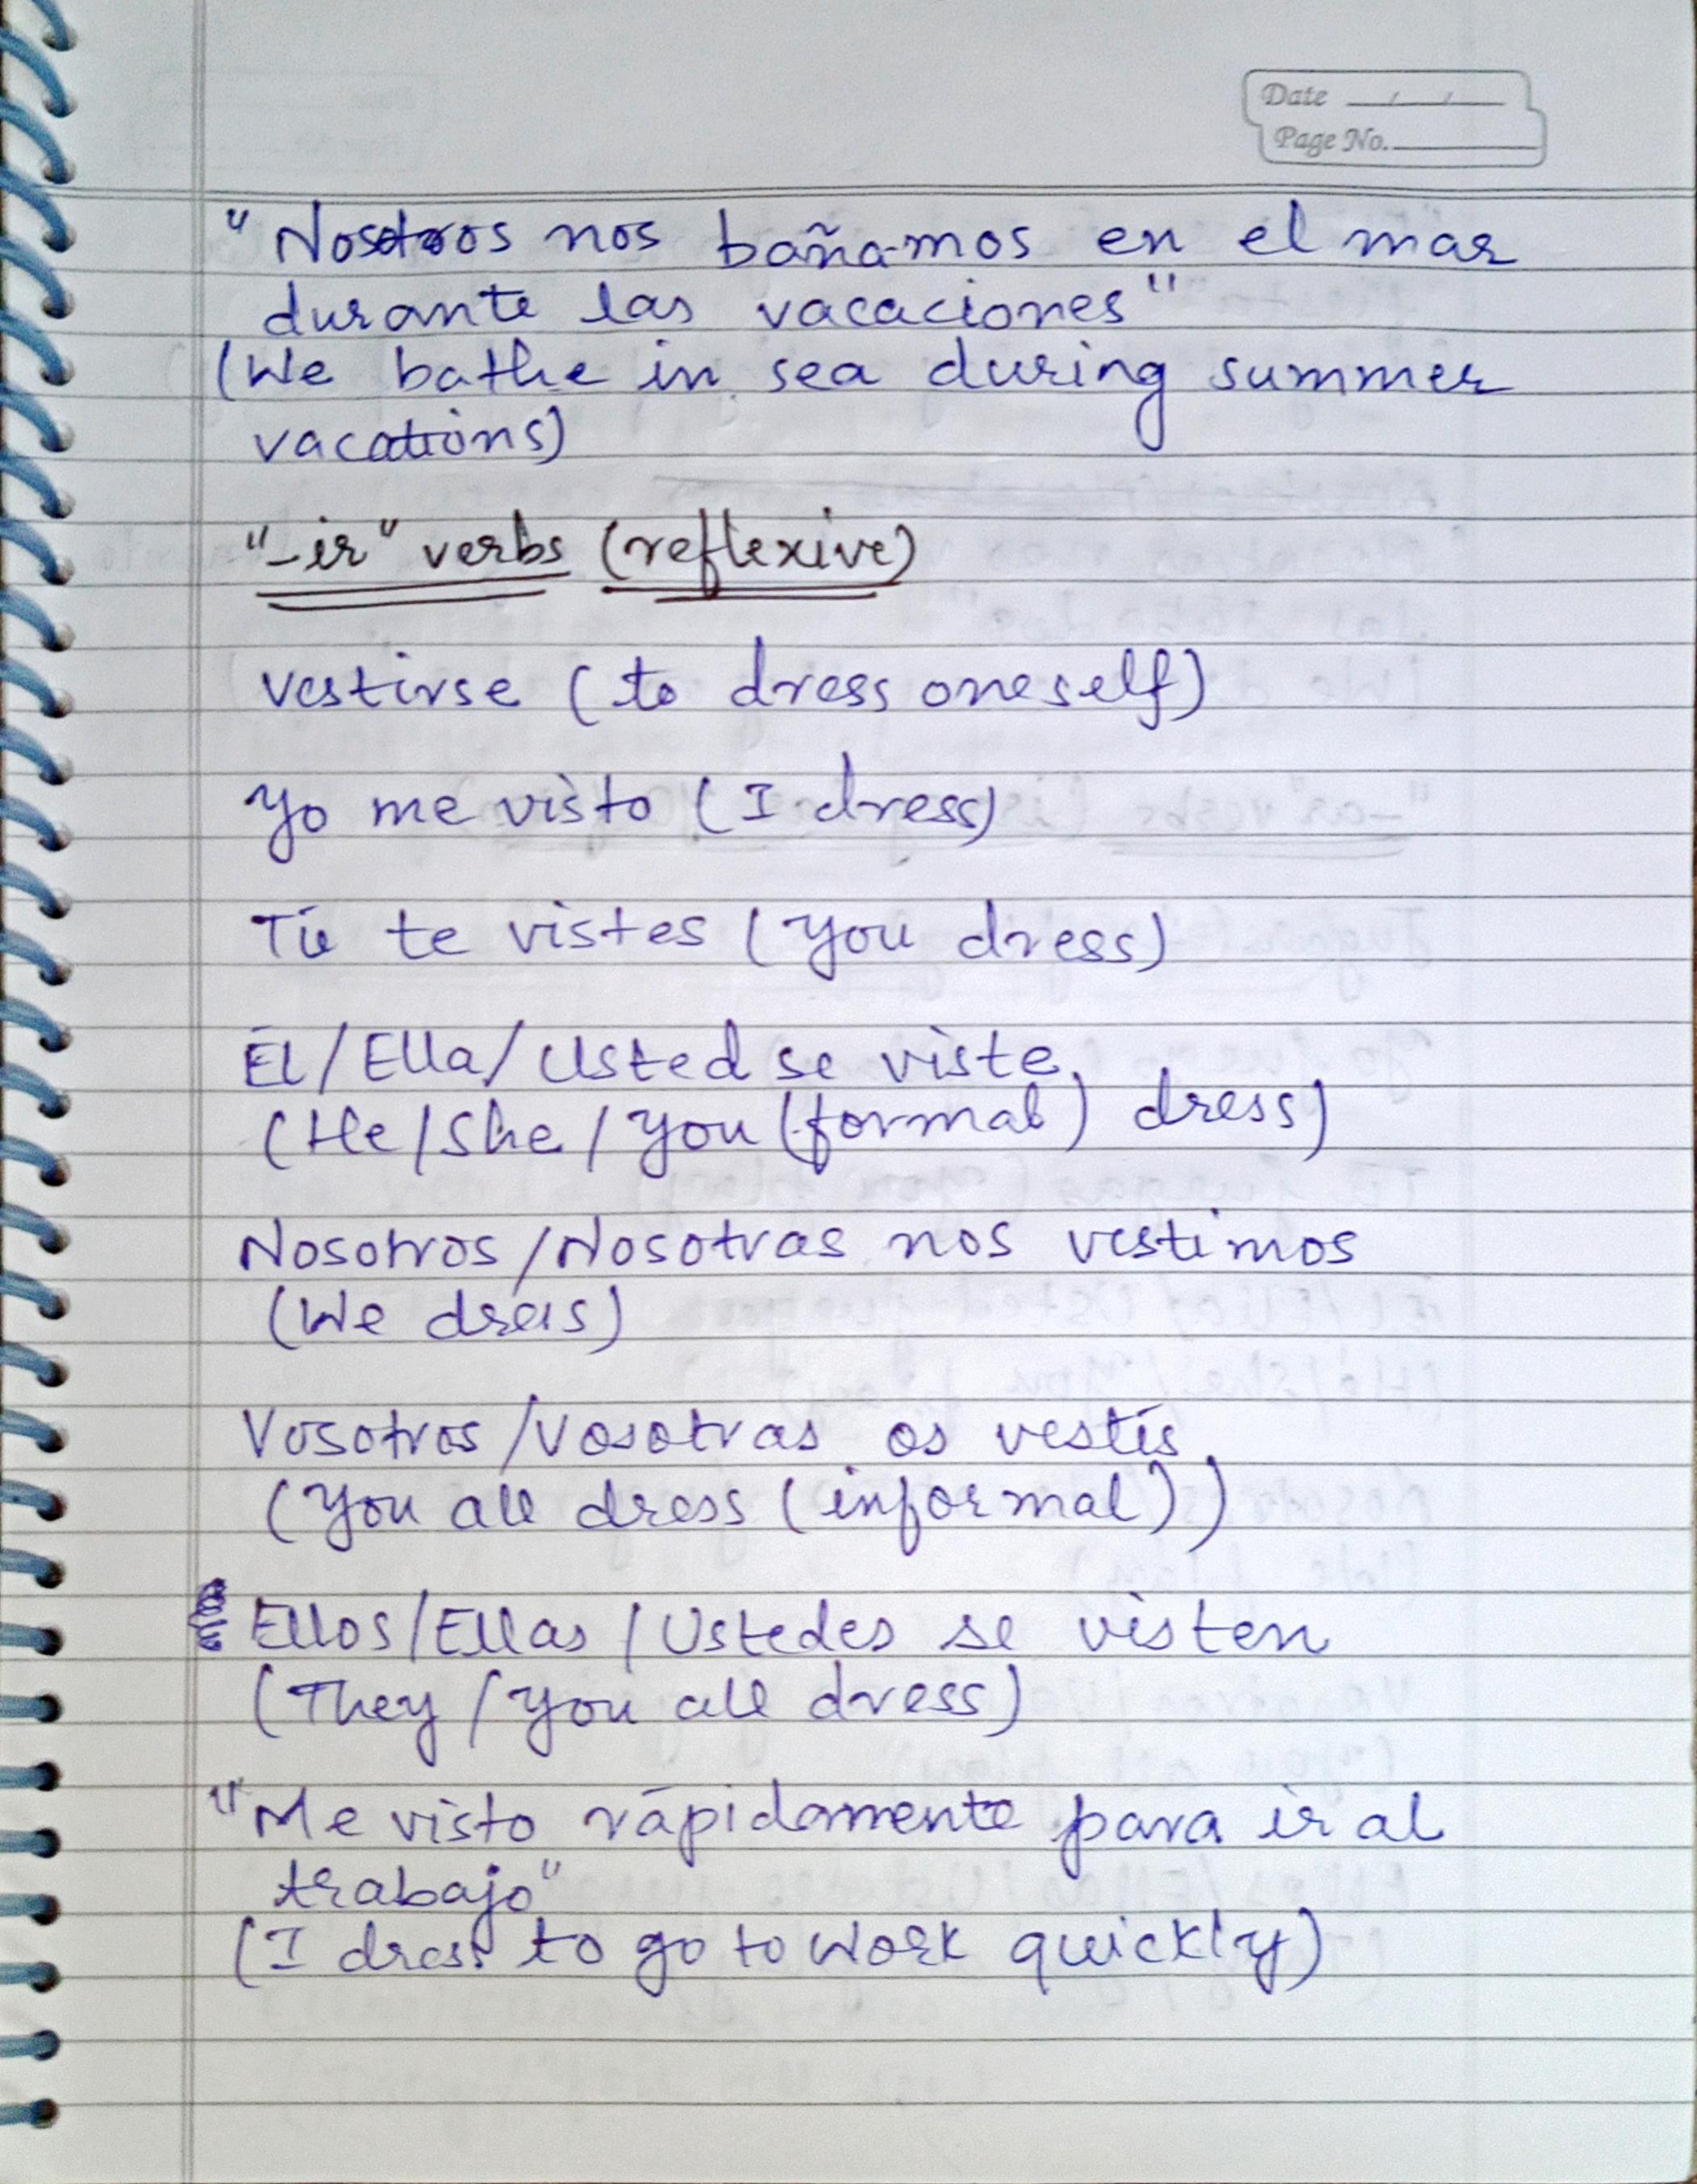 Date __/__/__
Page No.______
"Nosotros nos bañamos en el mar
durante las vacaciones"
(We bathe in sea during summer
vacations)
"-ir" verbs (reflexive)
Vestirse (to dress oneself)
Yo me visto (I dress)
Tú te vistes (You dress)
Él/Ella/Usted se viste
(He/She/You (formal) dress)
Nosotros/Nosotras nos vestimos
(We dress)
Vosotros/Vosotras os vestís
(You all dress (informal))
Ellos/Ellas/Ustedes se visten
(They/You all dress)
"Me visto rápidamente para ir al
trabajo"
(I dress to go to work quickly)